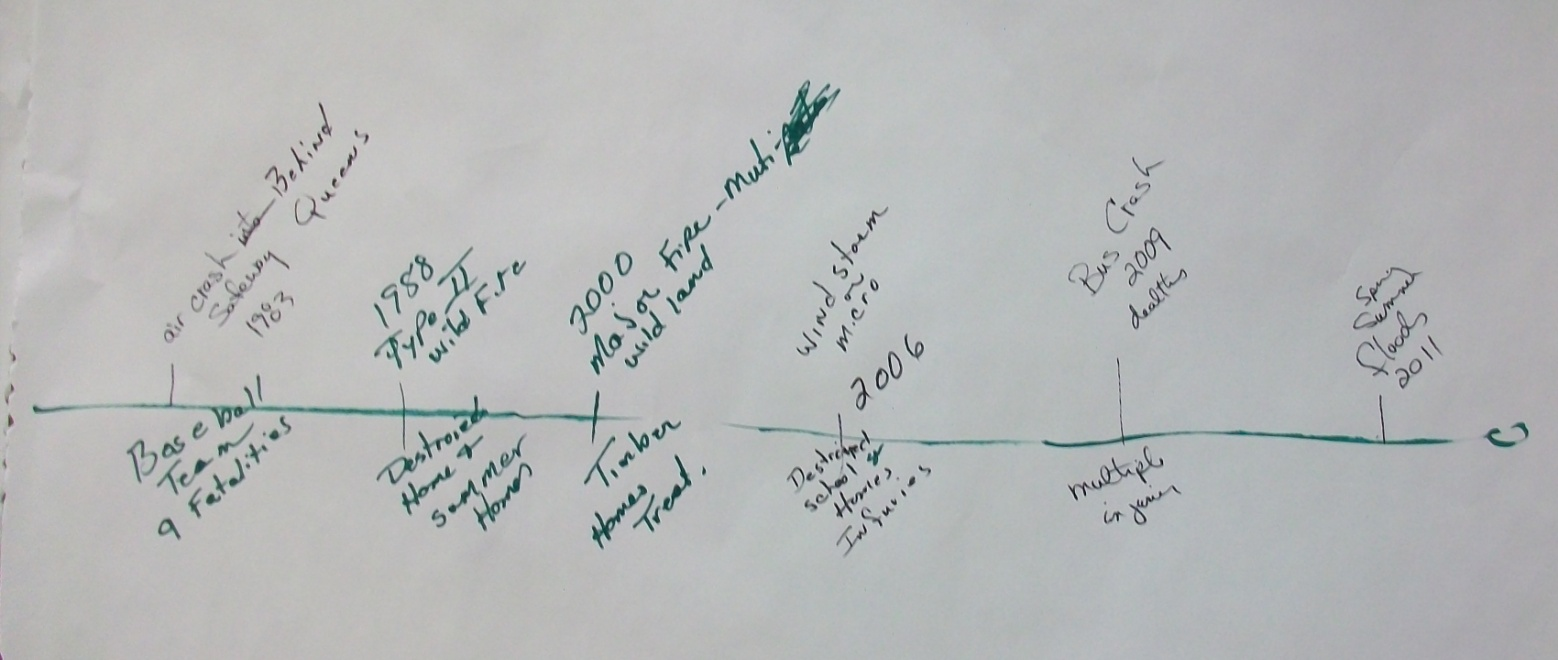 air crash into Behind
Safeway Queens
1983
Baseball
Team
9 Fatalities
1988
Type II
wild Fire
Destroied
Home &
summer
Homes
2000
Major Fire - Multi-
wild land
Timber
Homes
Treat.
wind storm
micro
2006
Destroied
school &
Homes
Injuries
Bus Crash
2009
deaths
multiple
injury
Spring
Summer
floods
2011